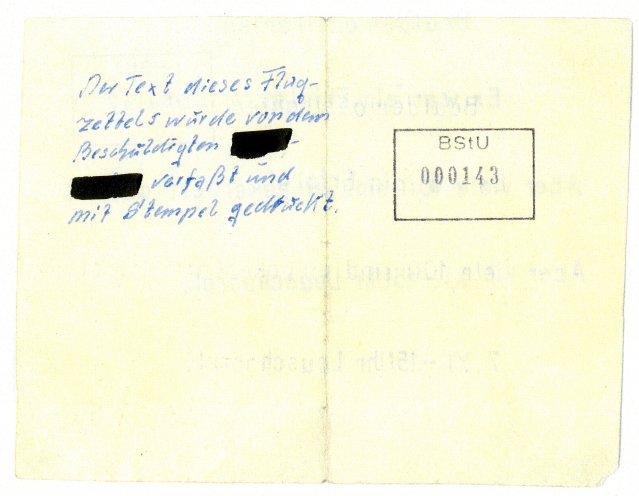 Der Text dieses Flug-
zettels wurde von dem
Beschuldigten
verfaßt und
mit Stempel gedruckt.
BStU
000143